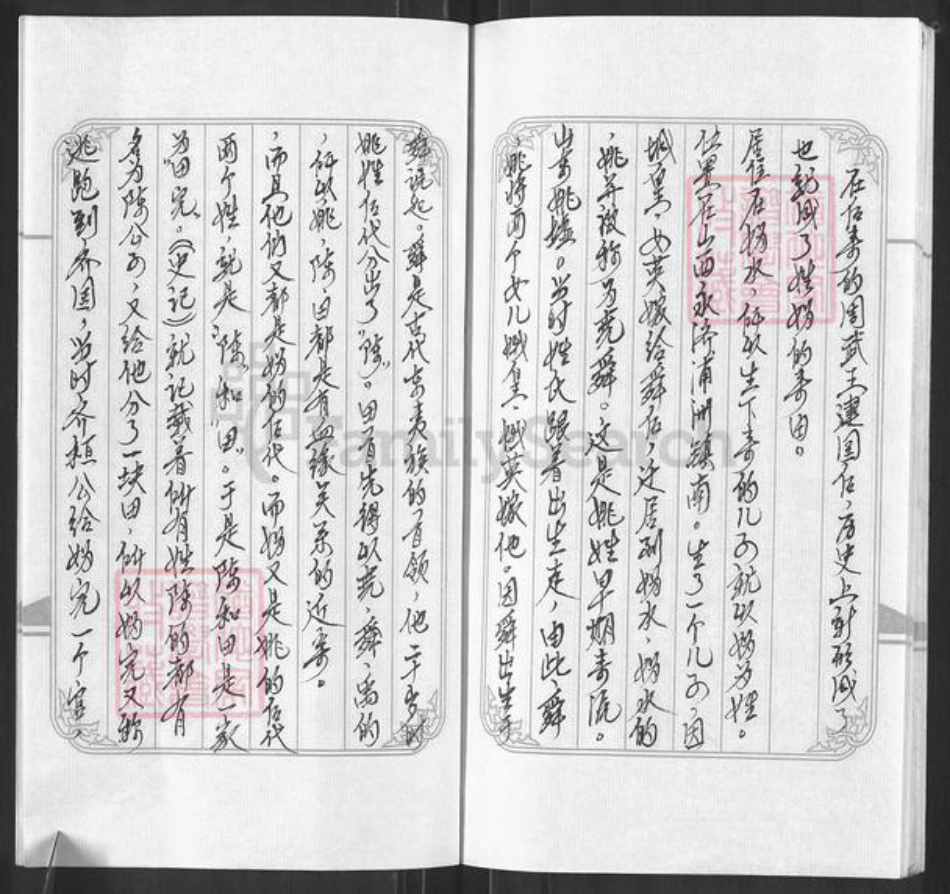 逃跑到齐国，当时齐桓公给妫完一个官，
名为陈公子，又给他分了一块田，所以妫完又称
为田完。《史记》就记载着所有姓陈的都有
两个姓，就是“陈”和“田”。于是陈和田是一家
，而且他们又都是妫的后代。而妫又是姚的后代
，所以姚、陈、田都是有血缘关系的近亲。
姚姓后代分出了“陈”。田首先得从尧、舜、禹的
舜说起。舜是古代东夷族的首领，他二十多岁时
，姚将两个女儿娥皇、娥英嫁他。因舜出生于
山东姚墟。当时姓氏跟着出生走，由此舜
姚并被称为尧舜。这是姚姓早期来源。
娥皇、女英嫁给舜后，迁居到妫水，妫水的
位置在山西永济浦洲镇南。生了一个儿子，因
居住在妫水，所以生下来的儿子就以妫为姓。
也就成了姓妫的来由。
在后来的周武王建国后，历史上就形成了
FamilySearch